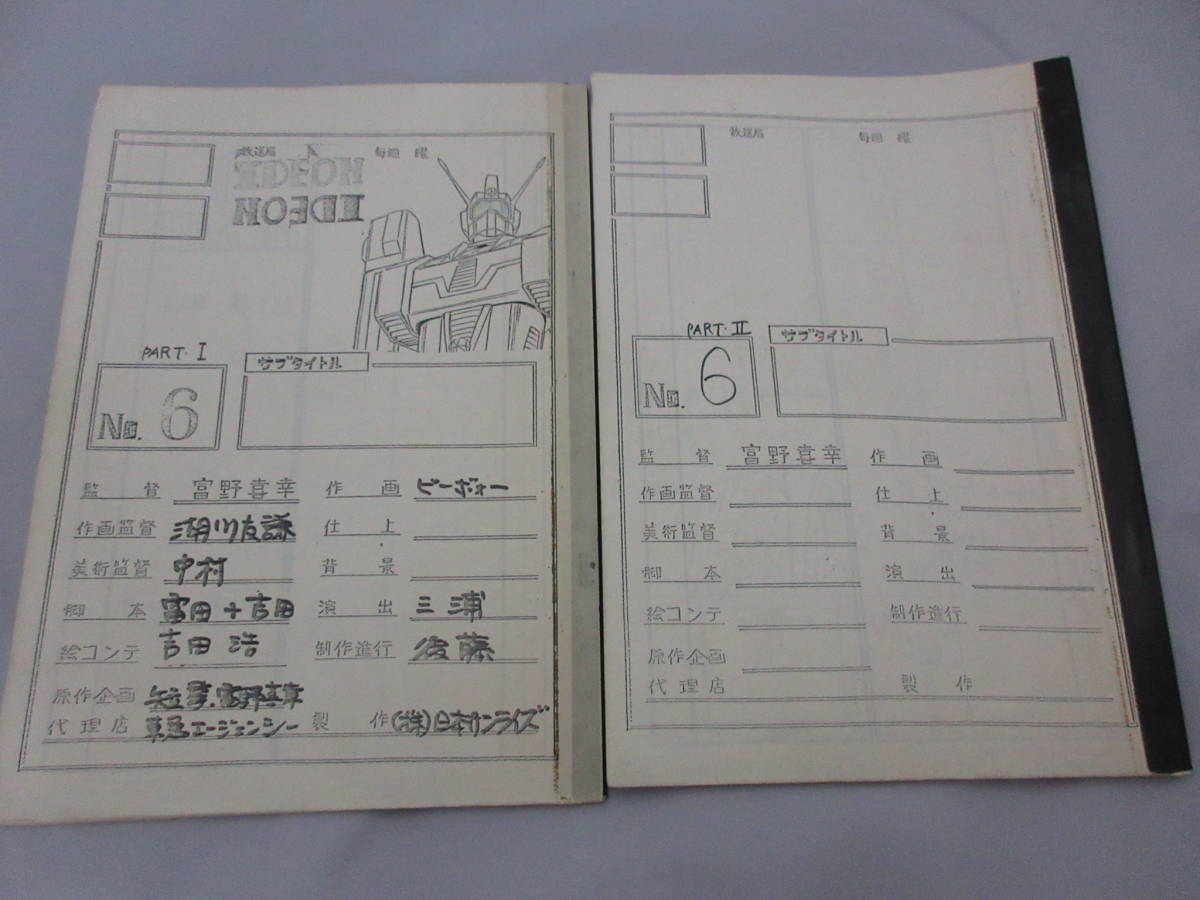 放送局 毎週 曜
IDEON
IDEON
PART・I
サブタイトル
No. 6
監督 富野喜幸 作画 ビーボォー
作画監督 湖川友謙 仕上
美術監督 中村 背景
脚本 富田+吉田 演出 三浦
絵コンテ 吉田浩 制作進行 後藤
原作企画 矢立肇、富野喜幸
代理店 東急エージェンシー 製作 (株)日本サンライズ
放送局 毎週 曜
PART・II
サブタイトル
No. 6
監督 富野喜幸 作画
作画監督 仕上
美術監督 背景
脚本 演出
絵コンテ 制作進行
原作企画
代理店 製作